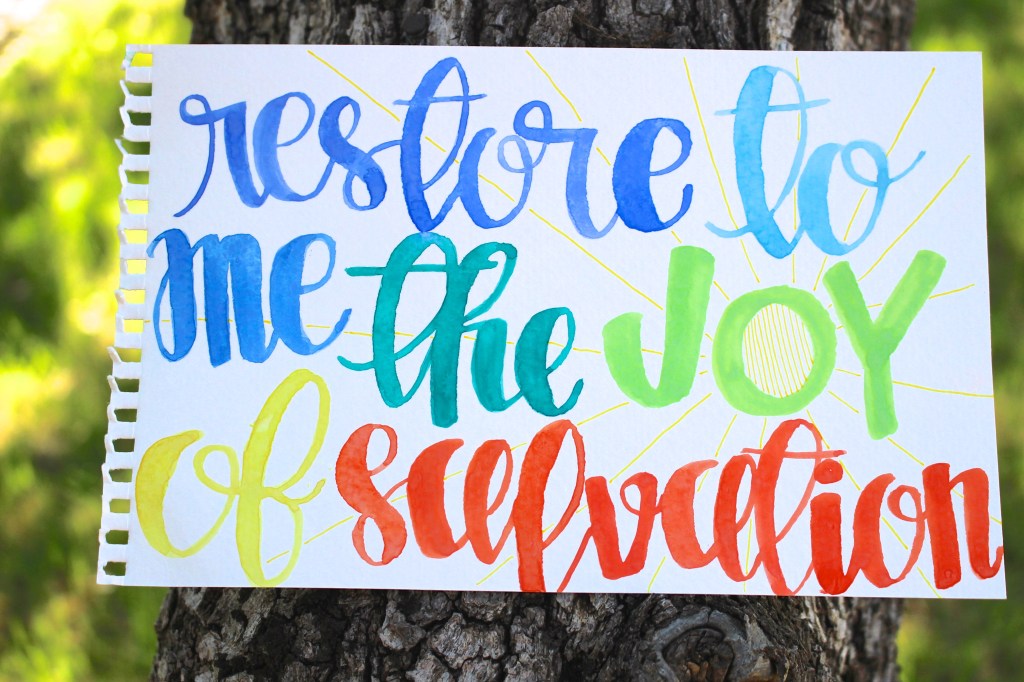 restore to
me the JOY
of salvation